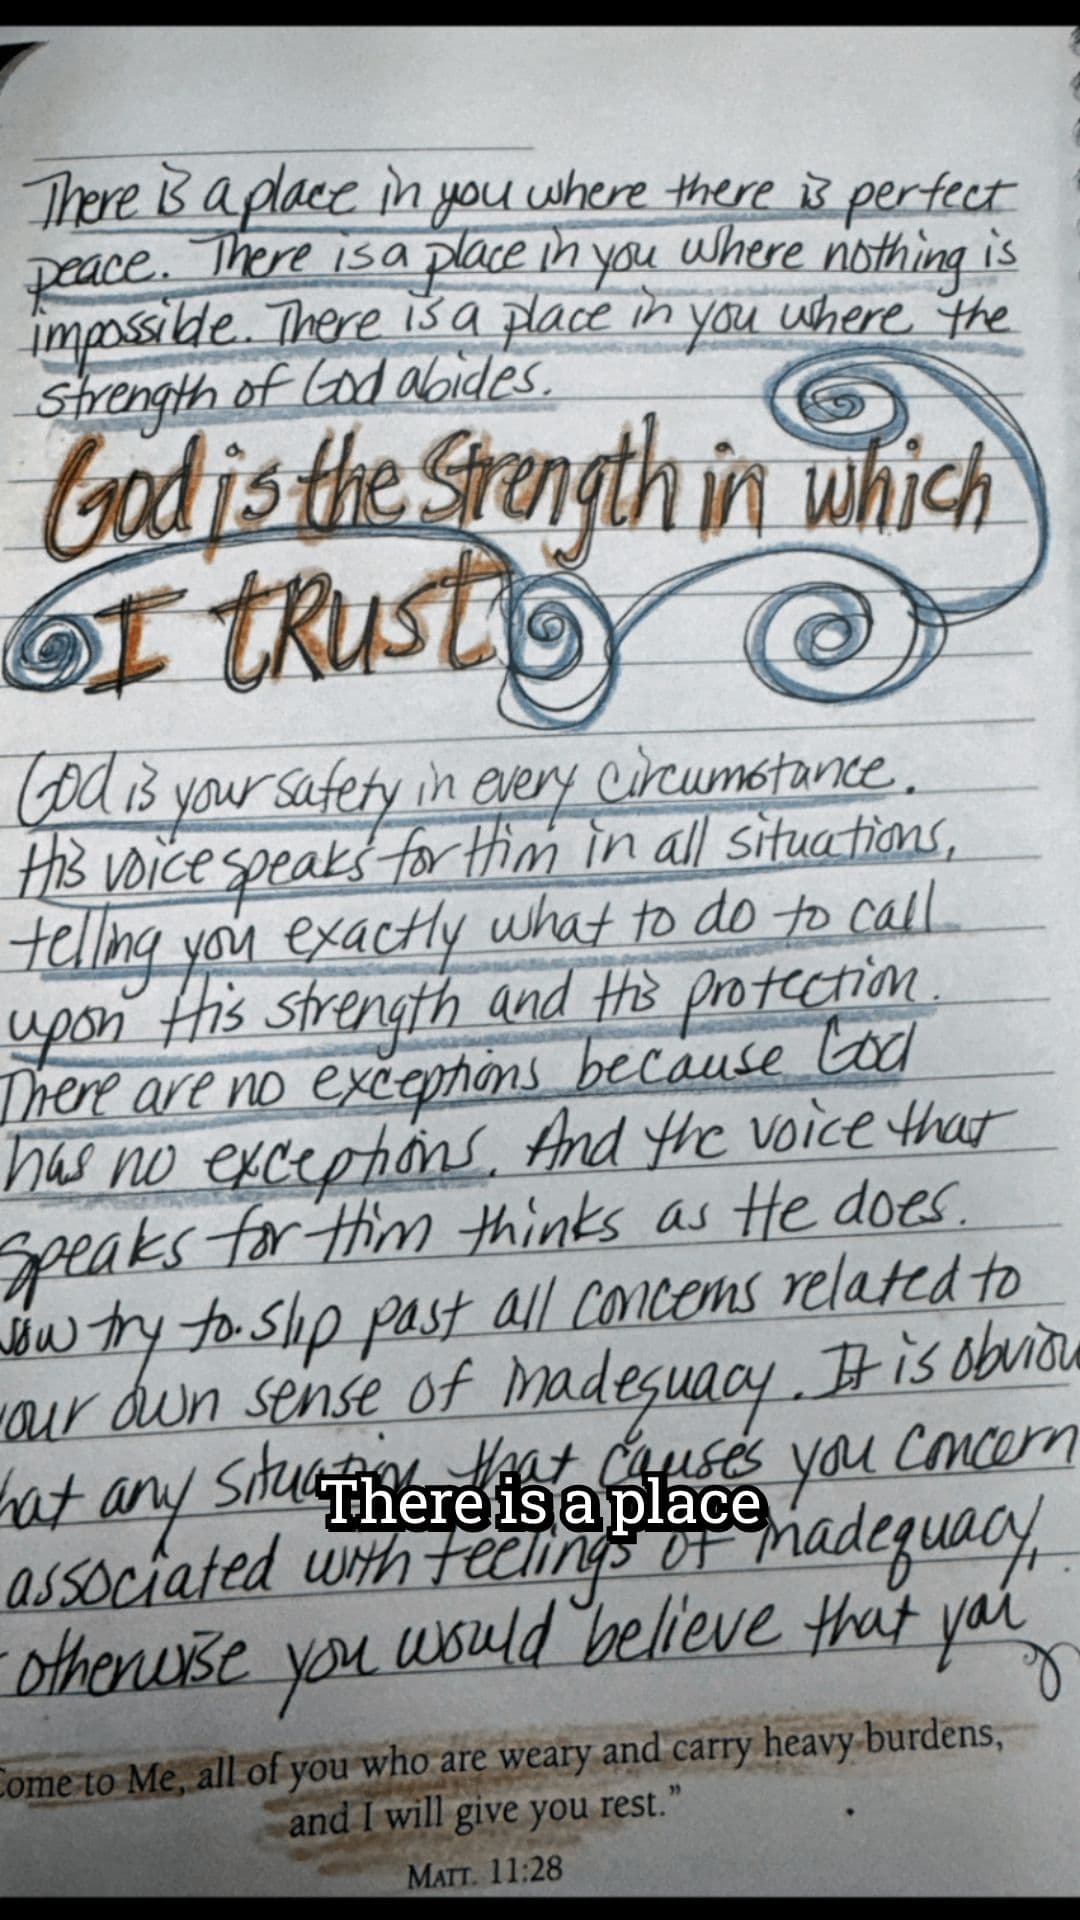 There is a place in you where there is perfect
peace. There is a place in you where nothing is
impossible. There is a place in you where the
strength of God abides.
God is the Strength in which
I trust
God is your safety in every circumstance.
His voice speaks for Him in all situations,
telling you exactly what to do to call
upon His strength and His protection.
There are no exceptions because God
has no exceptions. And the voice that
speaks for Him thinks as He does.
now try to slip past all concerns related to
our own sense of inadequacy. It is obviou
hat any situation that causes you concern
associated with feelings of inadequacy,
There is a place
otherwise you would believe that you
Come to Me, all of you who are weary and carry heavy burdens,
and I will give you rest.”
MATT. 11:28